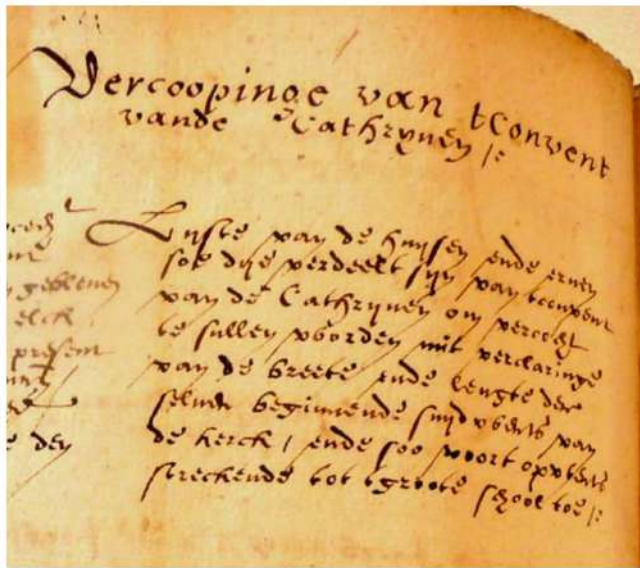 Vercoopinge van tConvent
vande Cathrynen /:
Lyste van de huysen ende erven
soe dye verdeelt syn van tconvent
van de Cathrynen om vercocht
te sullen worden mit verclaringe
van de breete ende lengte der
selver beginnende suydwerts van
de kerck / ende soo voort opwerts
streckende tot tgroote school toe /:
geblenen
elck
present
den